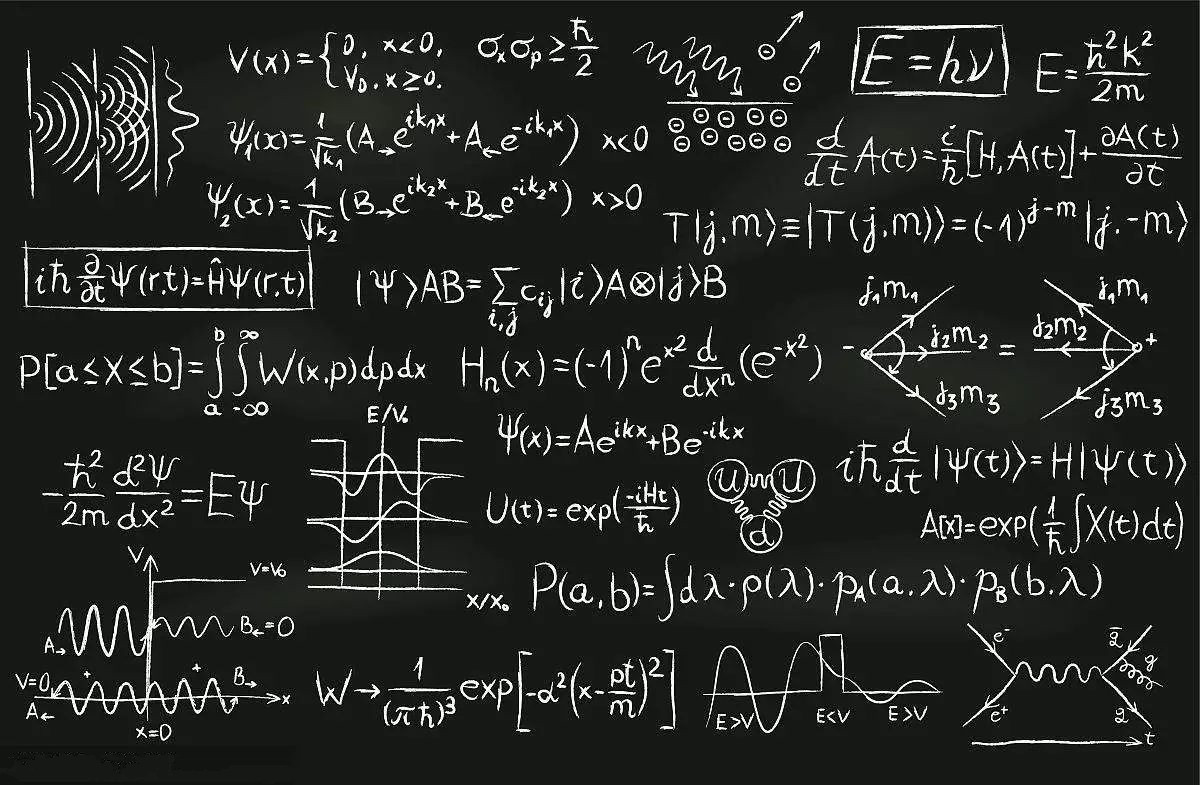 V(x)={0, x<0, V₀, x≥0. σₓσₚ≥ħ/2
E=hν
E=ħ²k²/2m
Ψ₁(x)=1/√k₁(A→e^{ik₁x}+A←e^{-ik₁x}) x<0
d/dt A(t)=i/ħ[H,A(t)]+∂A(t)/∂t
Ψ₂(x)=1/√k₂(B→e^{ik₂x}+B←e^{-ik₂x}) x>0
T|j,m⟩≡|T(j,m)⟩=(-1)^{j-m}|j,-m⟩
iħ ∂/∂t Ψ(r,t)=ĤΨ(r,t)
|Ψ⟩AB=∑_{i,j} c_{ij}|i⟩A⊗|j⟩B
j₁m₁ j₁m₁
- j₂m₂ = j₂m₂ +
j₃m₃ j₃m₃
P[a≤X≤b]=∫_a^b∫_{-∞}^∞ W(x,p)dpdx
Hₙ(x)=(-1)ⁿe^{x²} d/dxⁿ(e^{-x²})
E/V₀
X/X₀
Ψ(x)=Ae^{ikx}+Be^{-ikx}
iħ d/dt|Ψ(t)⟩=H|Ψ(t)⟩
-ħ²/2m d²Ψ/dx²=EΨ
U(t)=exp(-iHt/ħ)
U U
d
A[x]=exp(1/ħ∫X(t)dt)
P(a,b)=∫dλ·ρ(λ)·p_A(a,λ)·p_B(b,λ)
V
V=V₀
A→ B←=0
V=0 + + B→
A← x
x=0
W→1/(πħ)³ exp[-α²(x-pt/m)²]
E>V E<V E>V
e⁻ q̄ g
e⁺ q
t